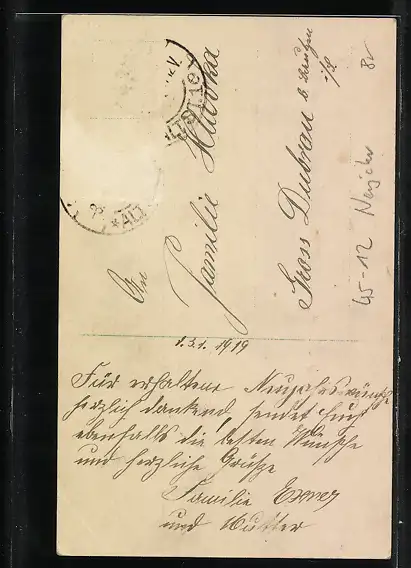 An
Familie Hlavka
Gross Dubrau b. Bautzen
i/S.
45-12 Neujahr
8v
1.31. 1919
Für erhaltene Neujahrswünsche
herzlich dankend, sendet Euch
ebenfalls die besten Wünsche
und herzliche Grüße
Familie Exner
und Mutter